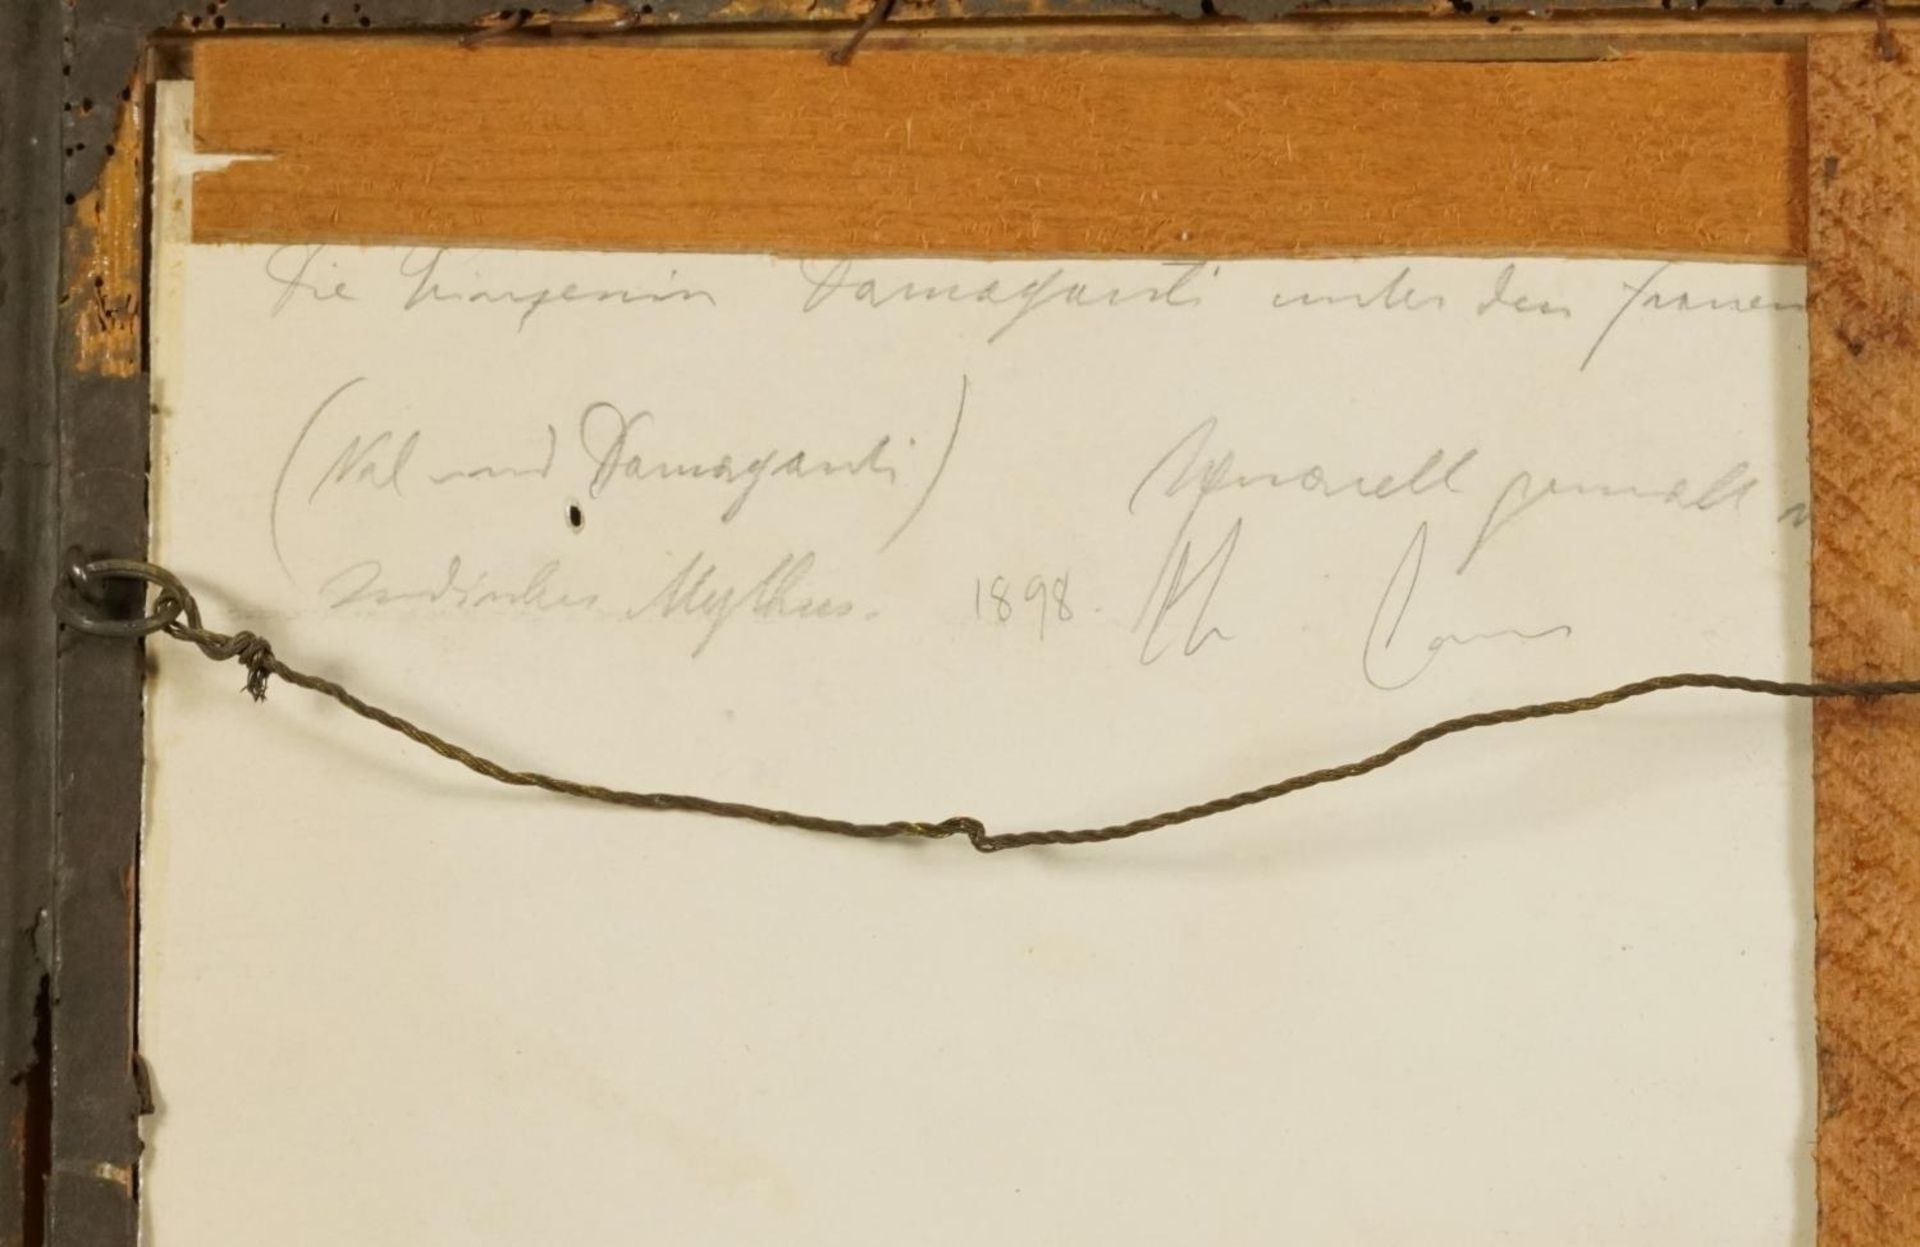 Die Königin Damayanti unter den Frauen
(Nal und Damayanti) Aquarell gemalt v
Indischer Mythus. 1898. Th